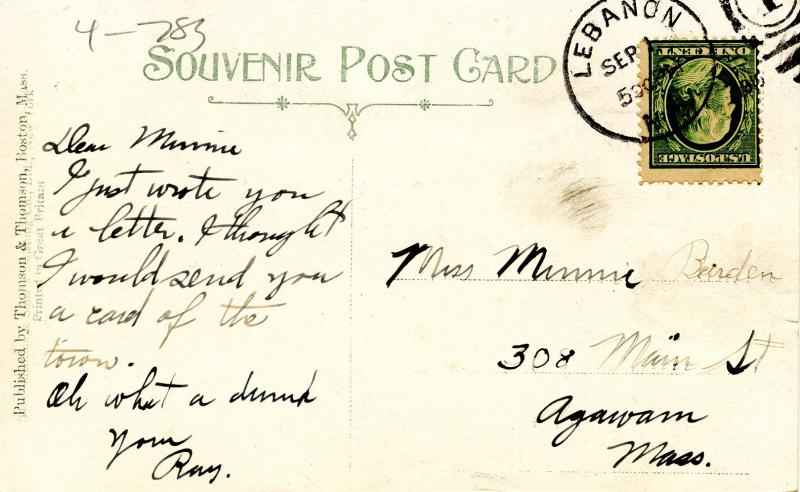 4-783
SOUVENIR POST CARD
LEBANON
SEP 1
530 P
ONE CENT
U.S. POSTAGE
1
Published by Thomson & Thomson, Boston, Mass.
Printed in Great Britain
Dear Minnie
I just wrote you
a letter. I thought
I would send you
a card of the
town.
Oh what a drunk
Your
Ray.
Miss Minnie Barden
308 Main St
Agawam
Mass.